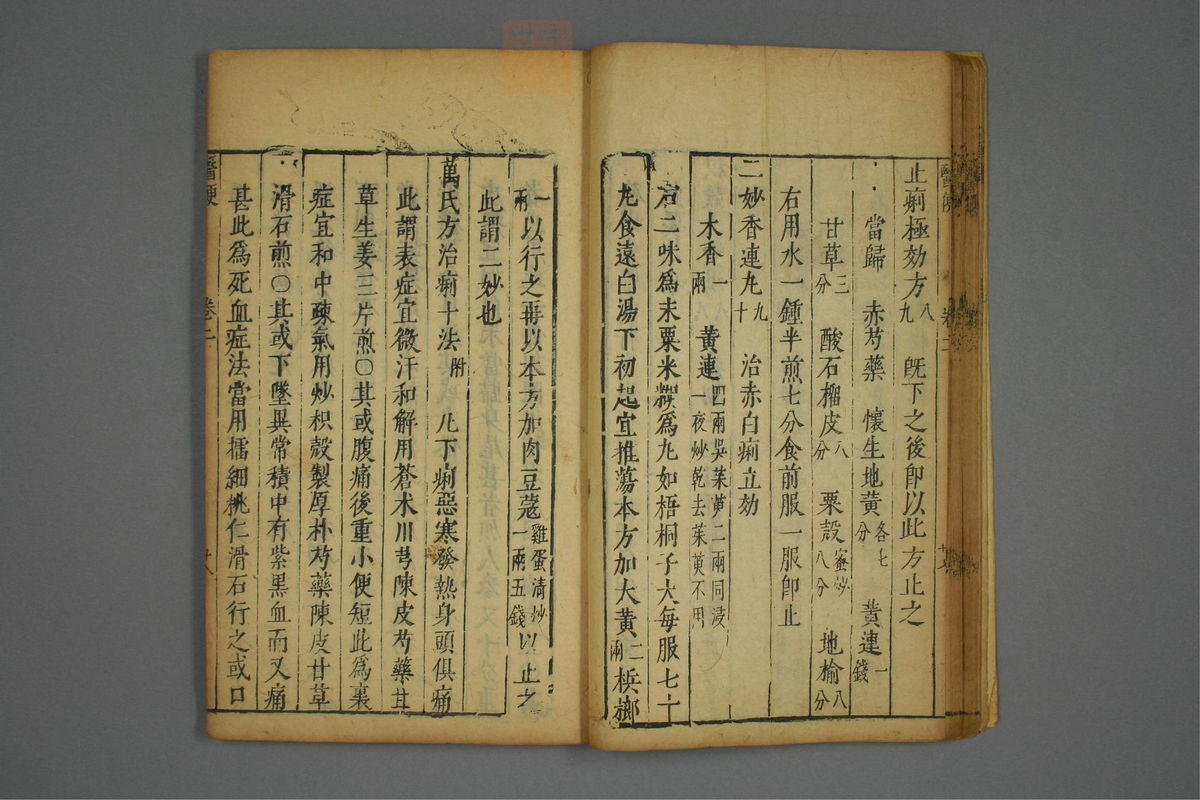 止痢極効方八九 旣下之後卽以此方止之
當歸 赤芍藥 懷生地黃各七分 黃連一錢
甘草三分 酸石榴皮八分 粟殼蜜炒八分 地榆八分
右用水一鍾半煎七分食前服一服卽止
二妙香連丸九十 治赤白痢立効
木香一兩 黃連四兩吳茱萸二兩同浸一夜炒乾去茱萸不用
右二味爲末粟米糊爲丸如梧桐子大每服七十
丸食遠白湯下初起宜推蕩本方加大黃二兩檳榔
一兩以行之再以本方加肉豆蔻雞蛋清炒一兩五錢以止之
此謂二妙也
萬氏方治痢十法附 凡下痢惡寒發熱身頭俱痛
此謂表症宜微汗和解用蒼朮川芎陳皮芍藥甘
草生姜三片煎○其或腹痛後重小便短此爲裏
症宜和中疎氣用炒枳殼製厚朴芍藥陳皮甘草
滑石煎○其或下墜異常積中有紫黑血而又痛
甚此爲死血症法當用擂細桃仁滑石行之或口
醫便 卷二 廿八